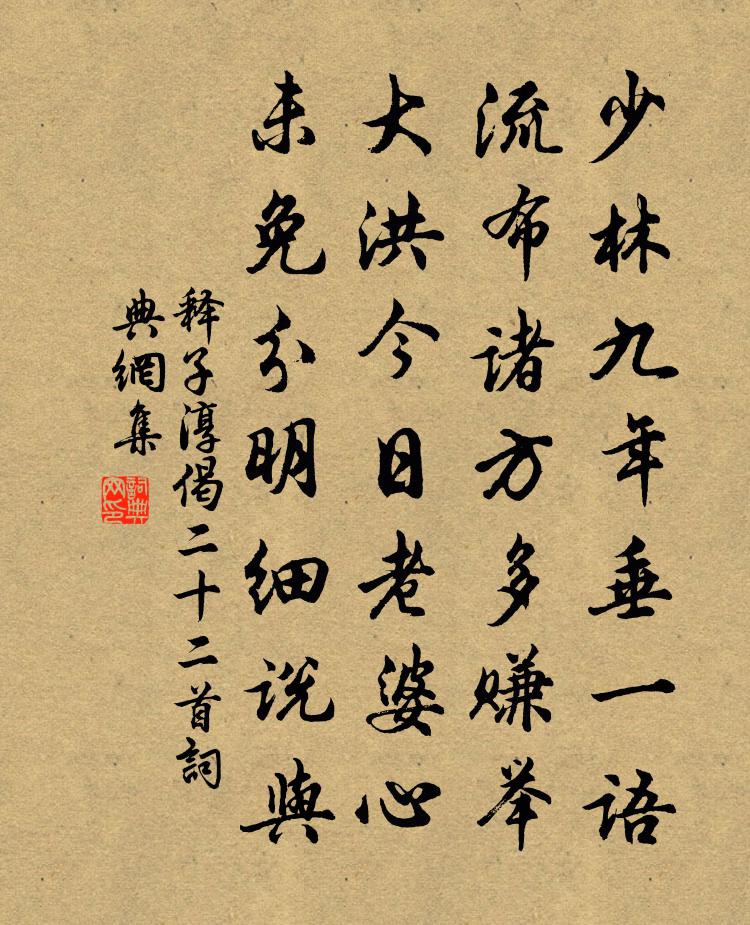 少林九年垂一语
流布诸方多赚举
大洪今日老婆心
未免分明细说与
释子淳偈二十二首詞
典網集
詞典网印